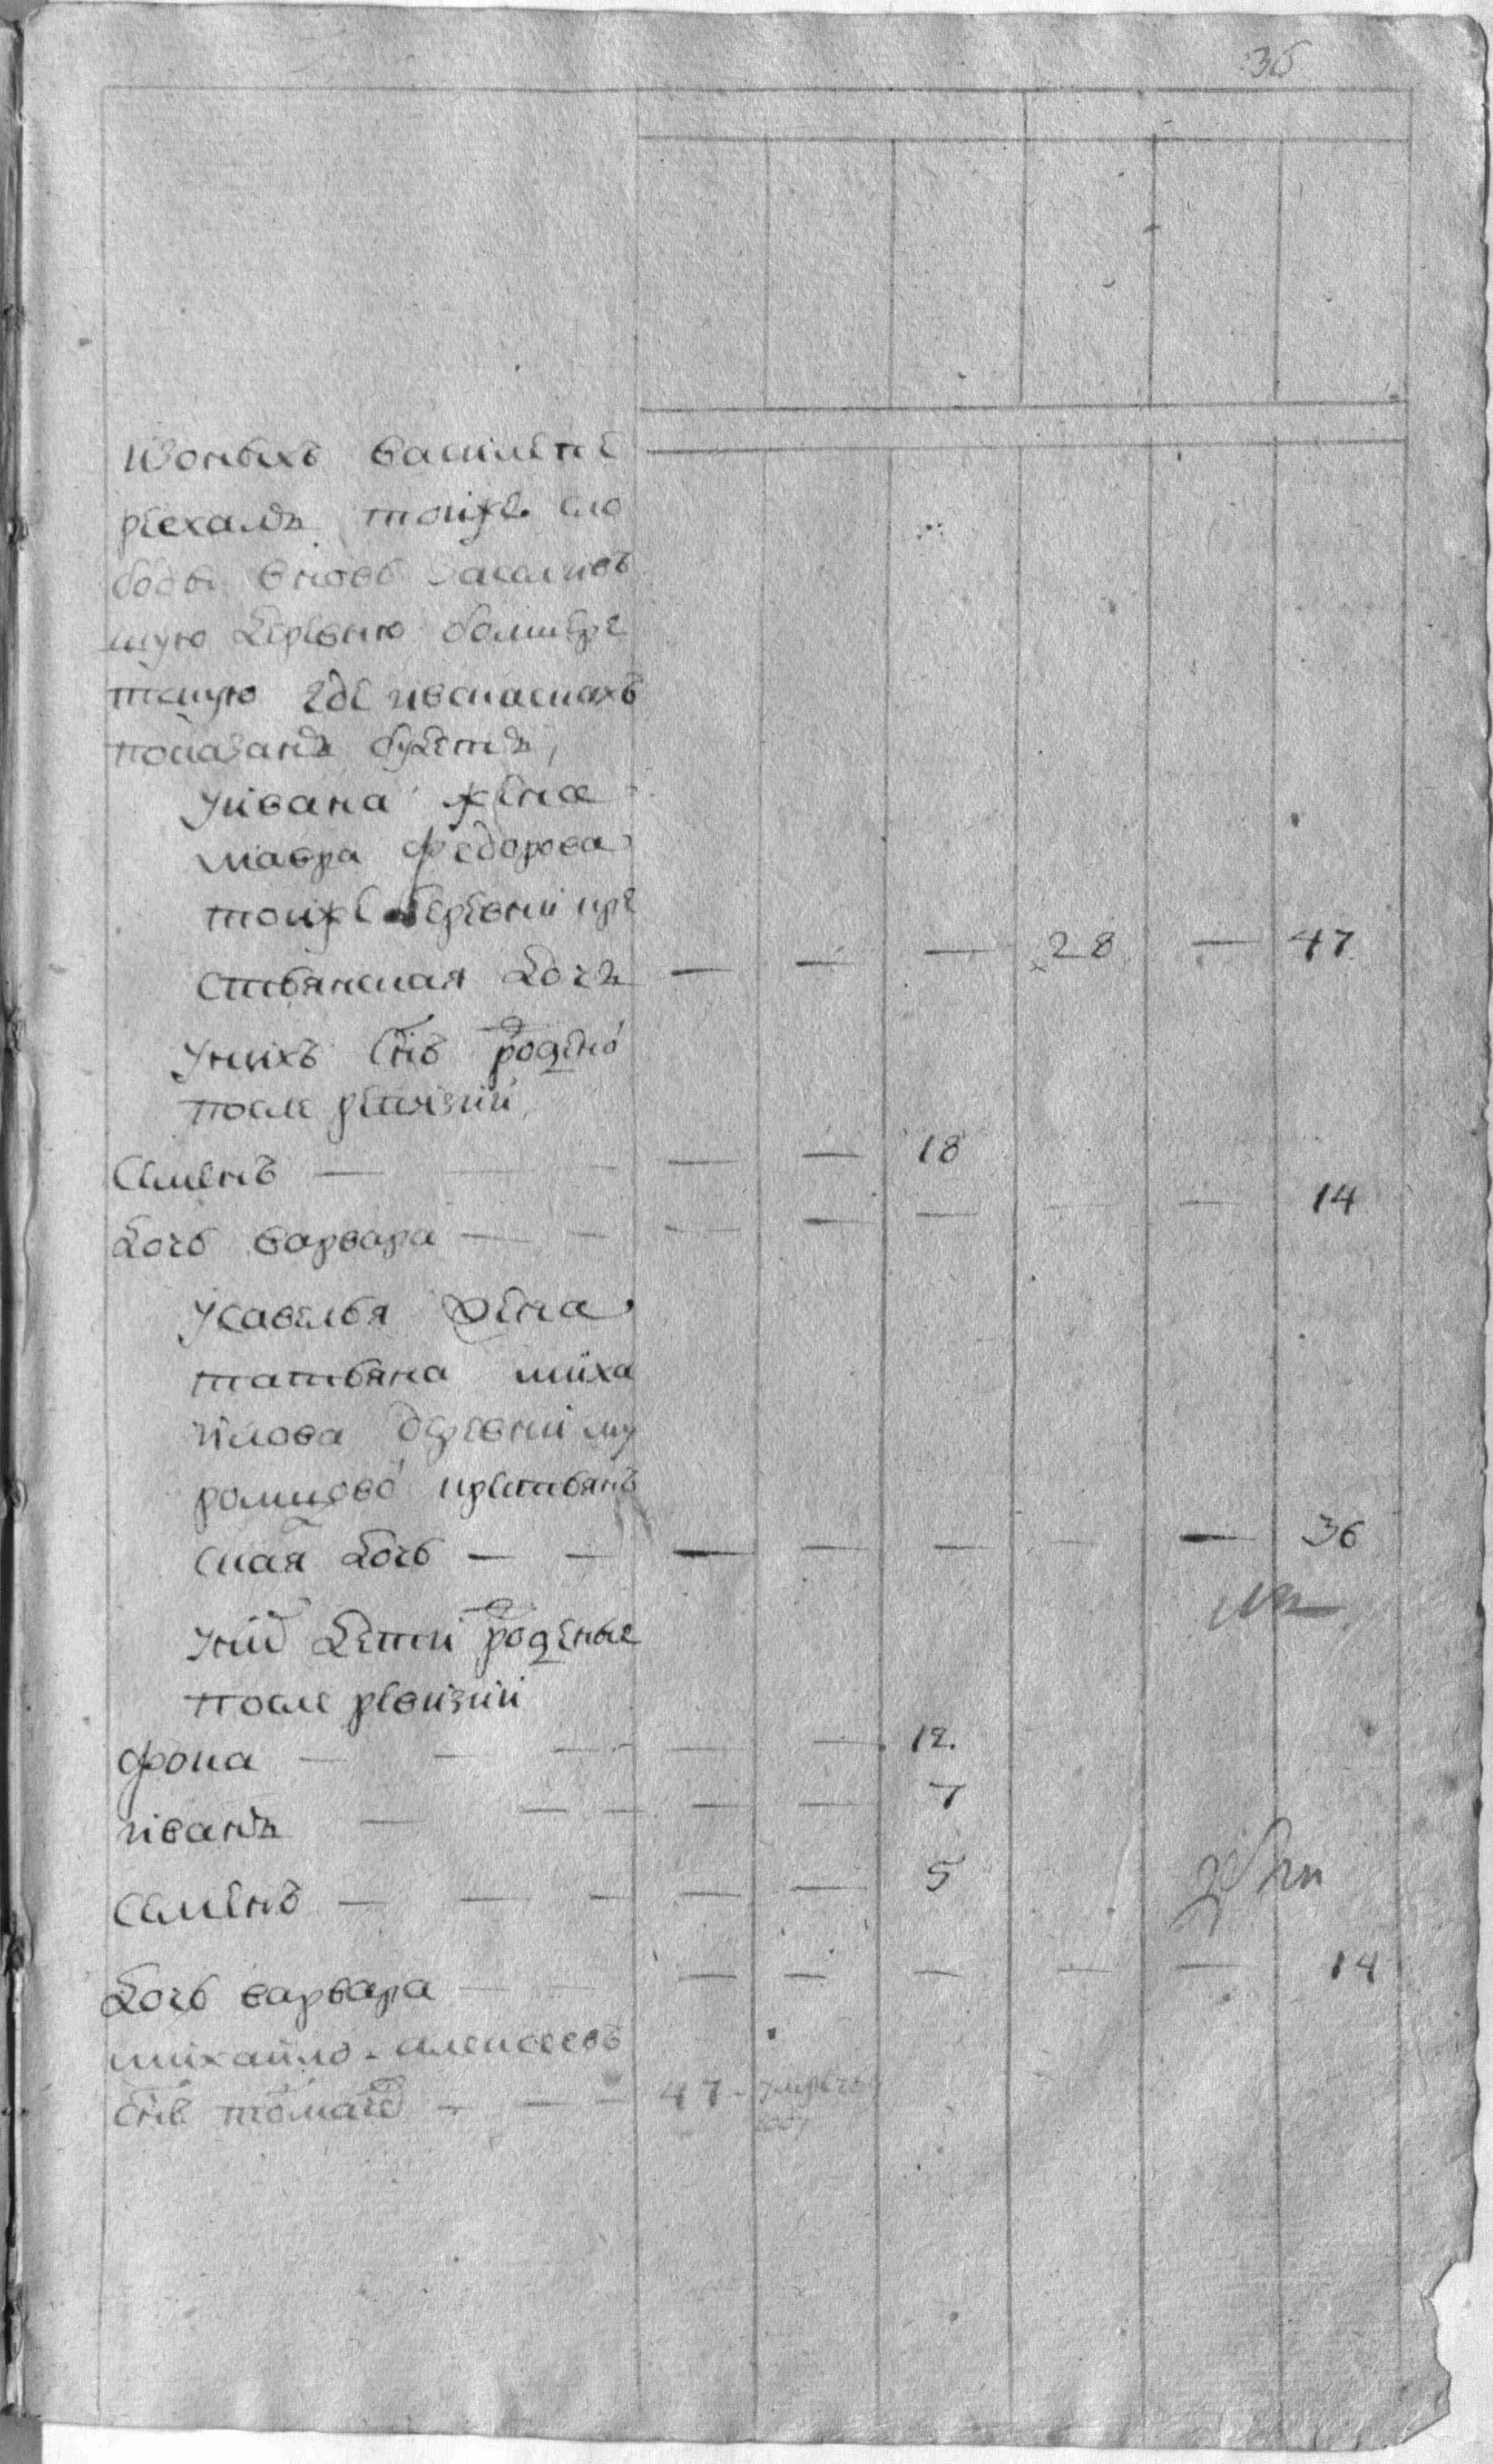 36
ис оныхъ василеи пе
реехалъ тоиже сло
боды вновь
шую деревню
где ивспискахъ
показанъ будетъ,
Уивана жена
мавра федорова
тоиже деревни кре
стьянская дочъ — — — 28 — 47
Унихъ снъ рождено
после ревизии
Семенъ — — — — — 18
Дочь варвара — — — — — — — 14
Усавелья жена
татьяна миха
илова деревни му
ромцово крестьянъ
ская дочь — — — — — — — 36
Уних дети рожденые
после ревизии
фома — — — — — 12.
иванъ — — — — — 7
Семенъ — — — — — 5
Дочь варвара — — — — — — — 14
михаило алексеевъ
снъ — — — 47 умре